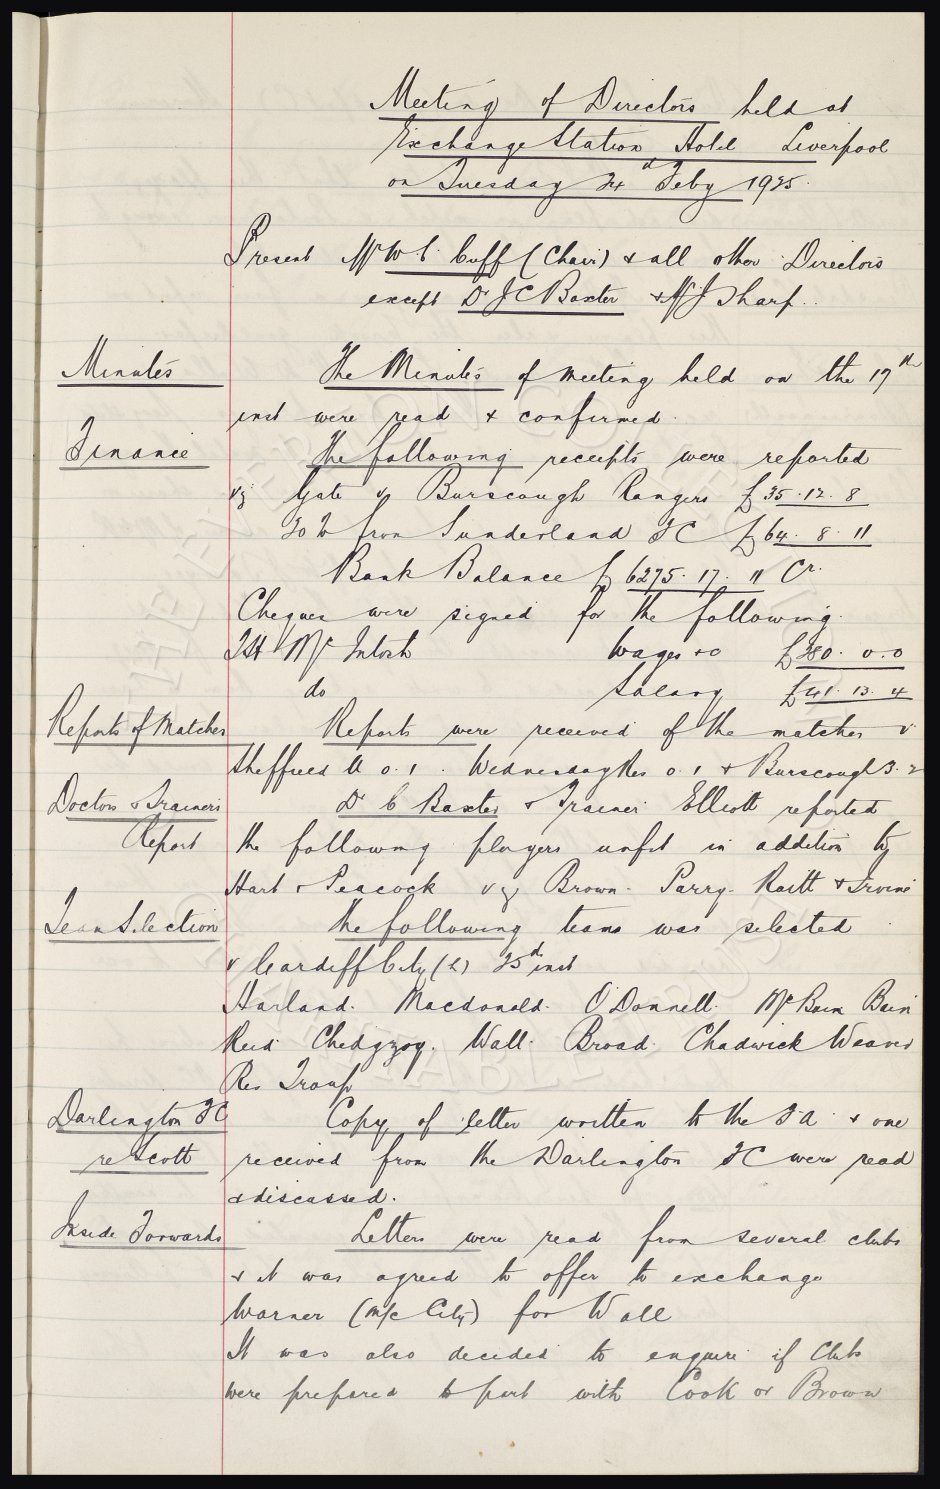 Meeting of Directors held at
Exchange Station Hotel Liverpool
on Tuesday 24th Feby 1925.
Present Mr W C Cuff (Chair) & all other Directors
except Dr J C Baxter & Mr J Sharp.
Minutes
The Minutes of meeting held on the 17th
inst were read & confirmed.
Finance
The following receipts were reported
viz Gate v Burscough Rangers £35.12.8
do from Sunderland FC £64.8.11
Bank Balance £6275.17.11 Cr.
Cheques were signed for the following.
T H McIntosh Wages &c £380.0.0
do Salary £41.13.4
Reports of Matches
Reports were received of the matches v
Sheffield U 0.1. Wednesday Res 0.1 & Burscough 3.2
Doctors & Trainers
Report
Dr C Baxter & Trainer Elliott reported
the following players unfit in addition to
Hart & Peacock viz Brown. Parry. Raitt & Irvine
Team Selection
The following team was selected
v Cardiff City (L) 25th inst
Harland. Macdonald. O'Donnell. McBain Bain
Reid Chedgzoy. Wall. Broad. Chadwick Weaver
Res Troup
Darlington FC
re Scott
Copy of letter written to the F A & one
received from the Darlington FC were read
& discussed.
Inside Forwards
Letters were read from several clubs
& it was agreed to offer to exchange
Warner (M/c City) for Wall
It was also decided to enquire if Clubs
were prepared to part with Cook or Brown
THE EVERTON COLLECTION
CHARITABLE TRUST